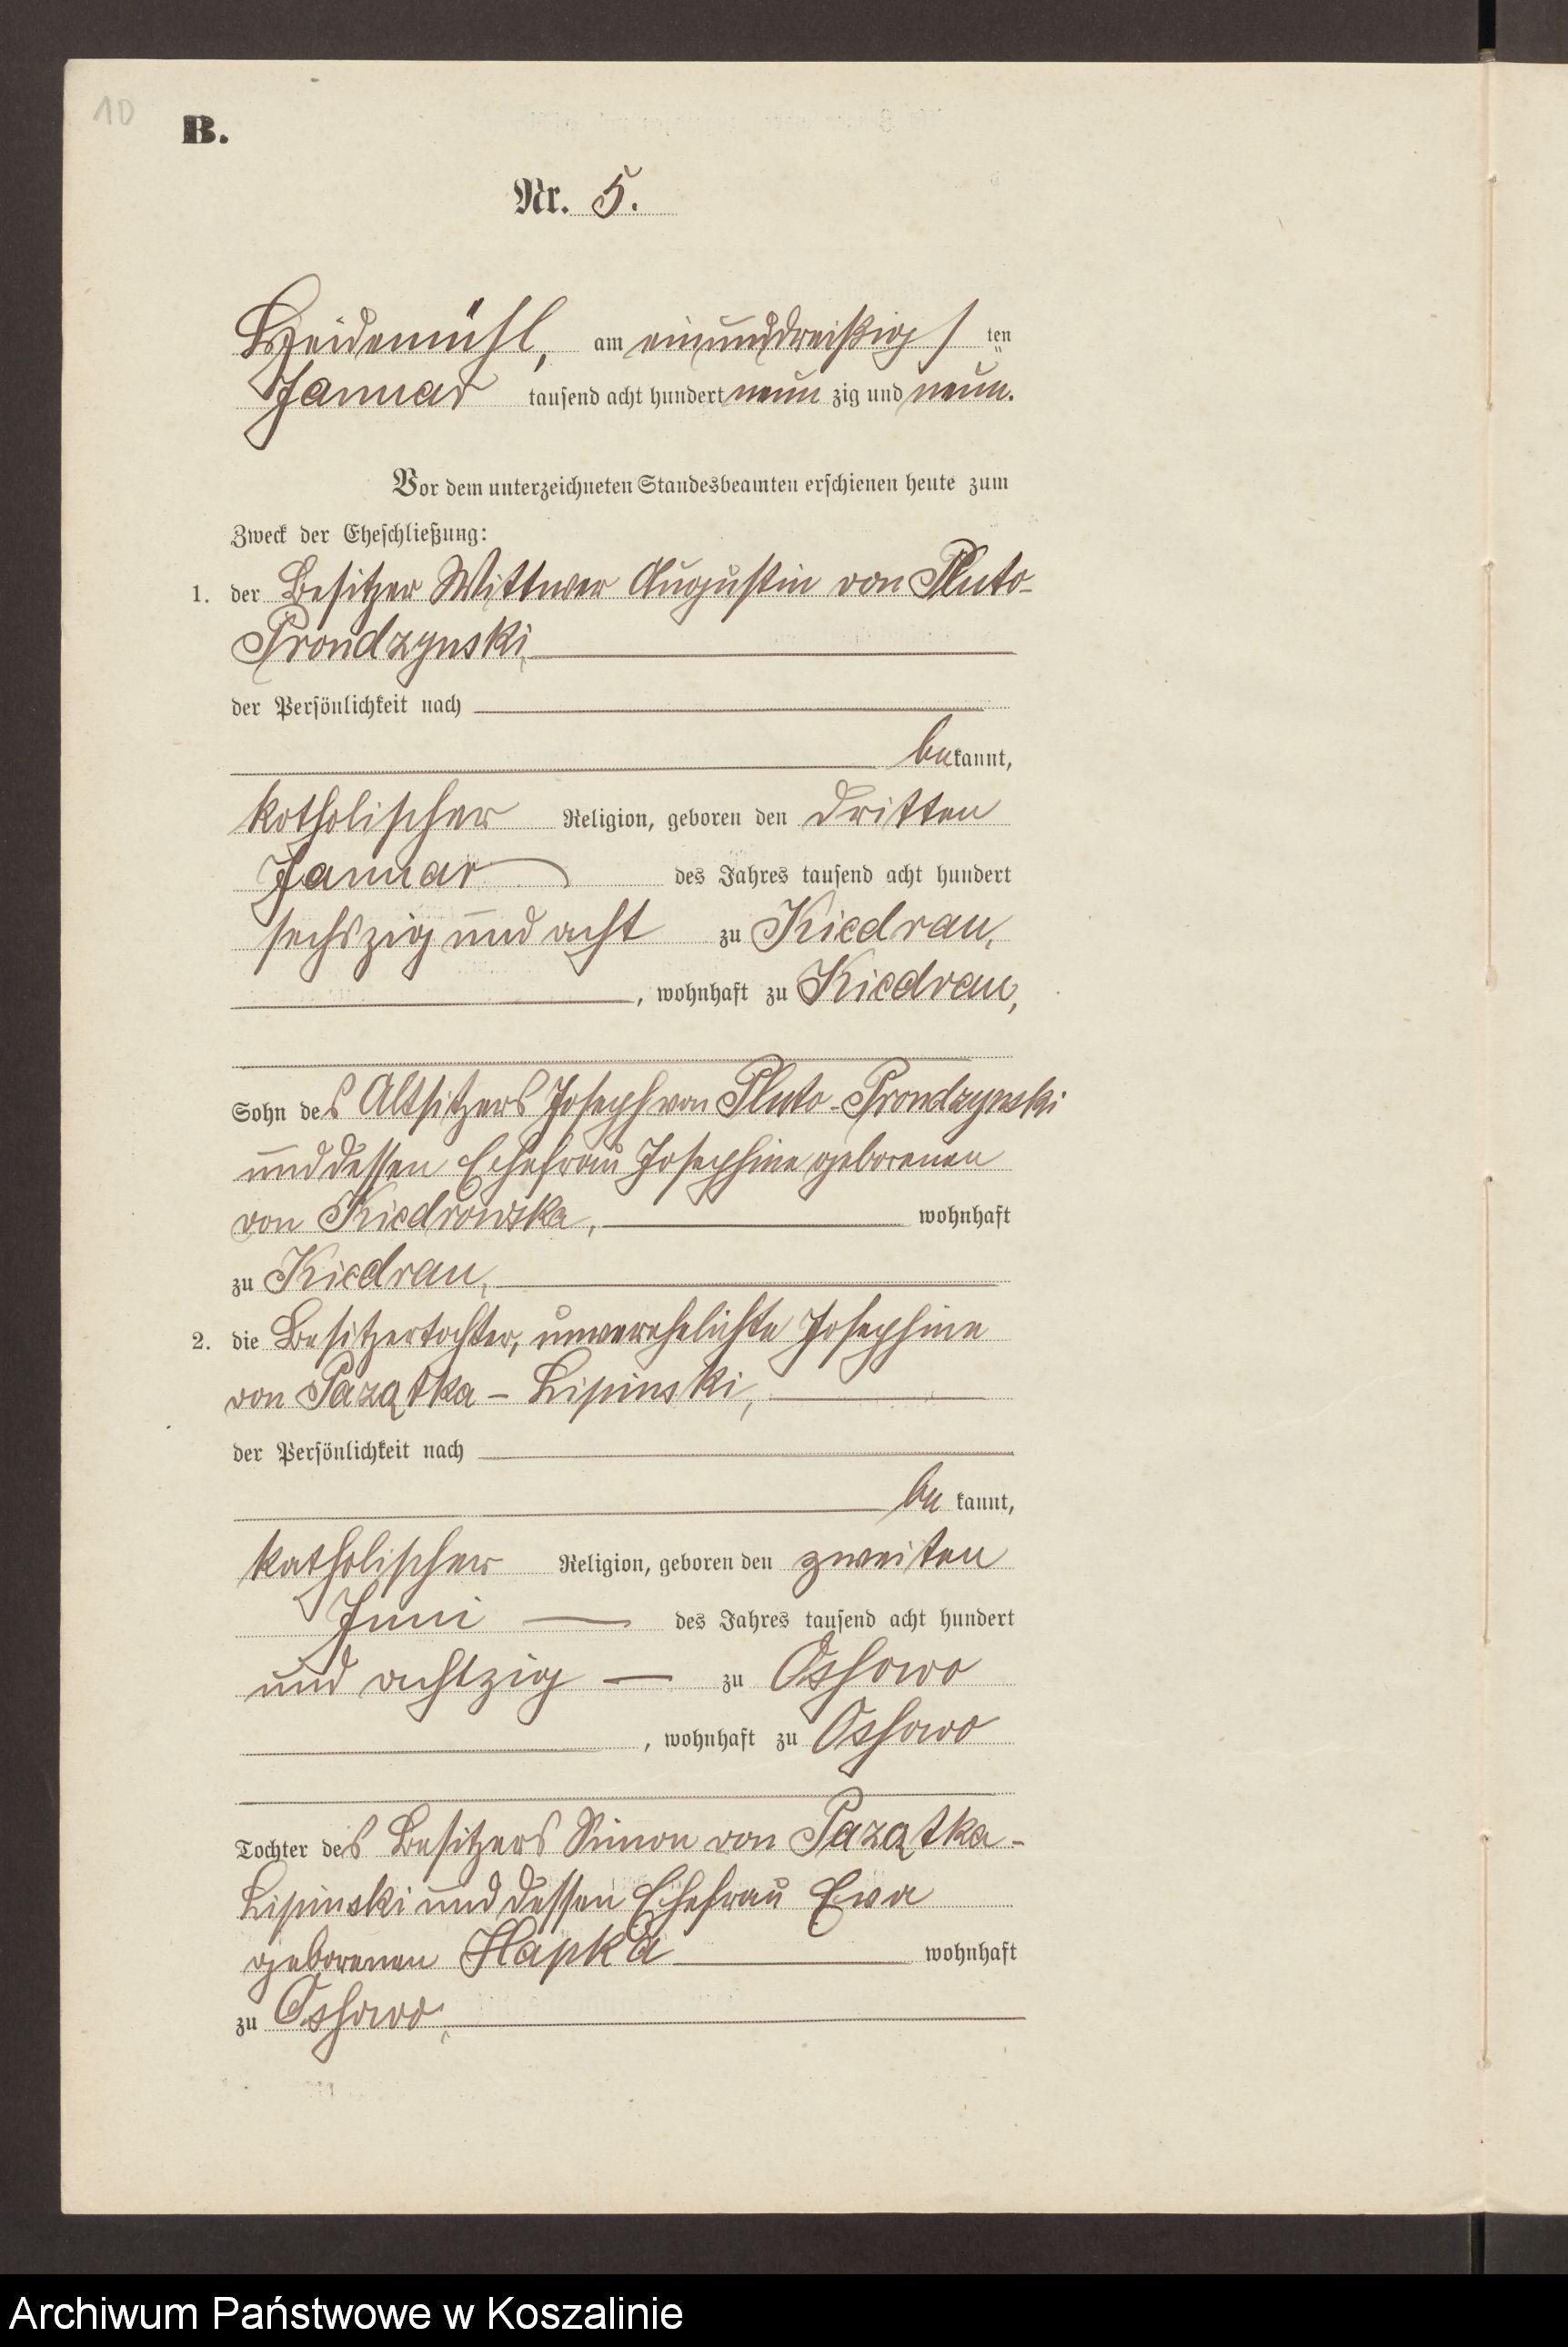 10
B.
Nr. 5.
Heidemühl, am einunddreißigsten
Januar tausend acht hundert neun zig und neun.
Vor dem unterzeichneten Standesbeamten erschienen heute zum
Zweck der Eheschließung:
1. der Besitzer Wittwer Augustin von Pluto-
Prondzynski,
der Persönlichkeit nach
bekannt,
katholischer Religion, geboren den dritten
Januar des Jahres tausend acht hundert
sechszig und acht zu Kiedrau,
, wohnhaft zu Kiedrau,
Sohn des Altsitzers Joseph von Pluto-Prondzynski
und dessen Ehefrau Josephine geborenen
von Kiedrowska, wohnhaft
zu Kiedrau,
2. die Besitzertochter, unverehelichte Josephine
von Pazątka - Lipinski,
der Persönlichkeit nach
be kannt,
katholischer Religion, geboren den zweiten
Juni des Jahres tausend acht hundert
und achtzig zu Osshowo
, wohnhaft zu Osshowo
Tochter des Besitzers Simon von Pazątka-
Lipinski und dessen Ehefrau Eva
geborenen Hapka wohnhaft
zu Osshowo,
Archiwum Państwowe w Koszalinie